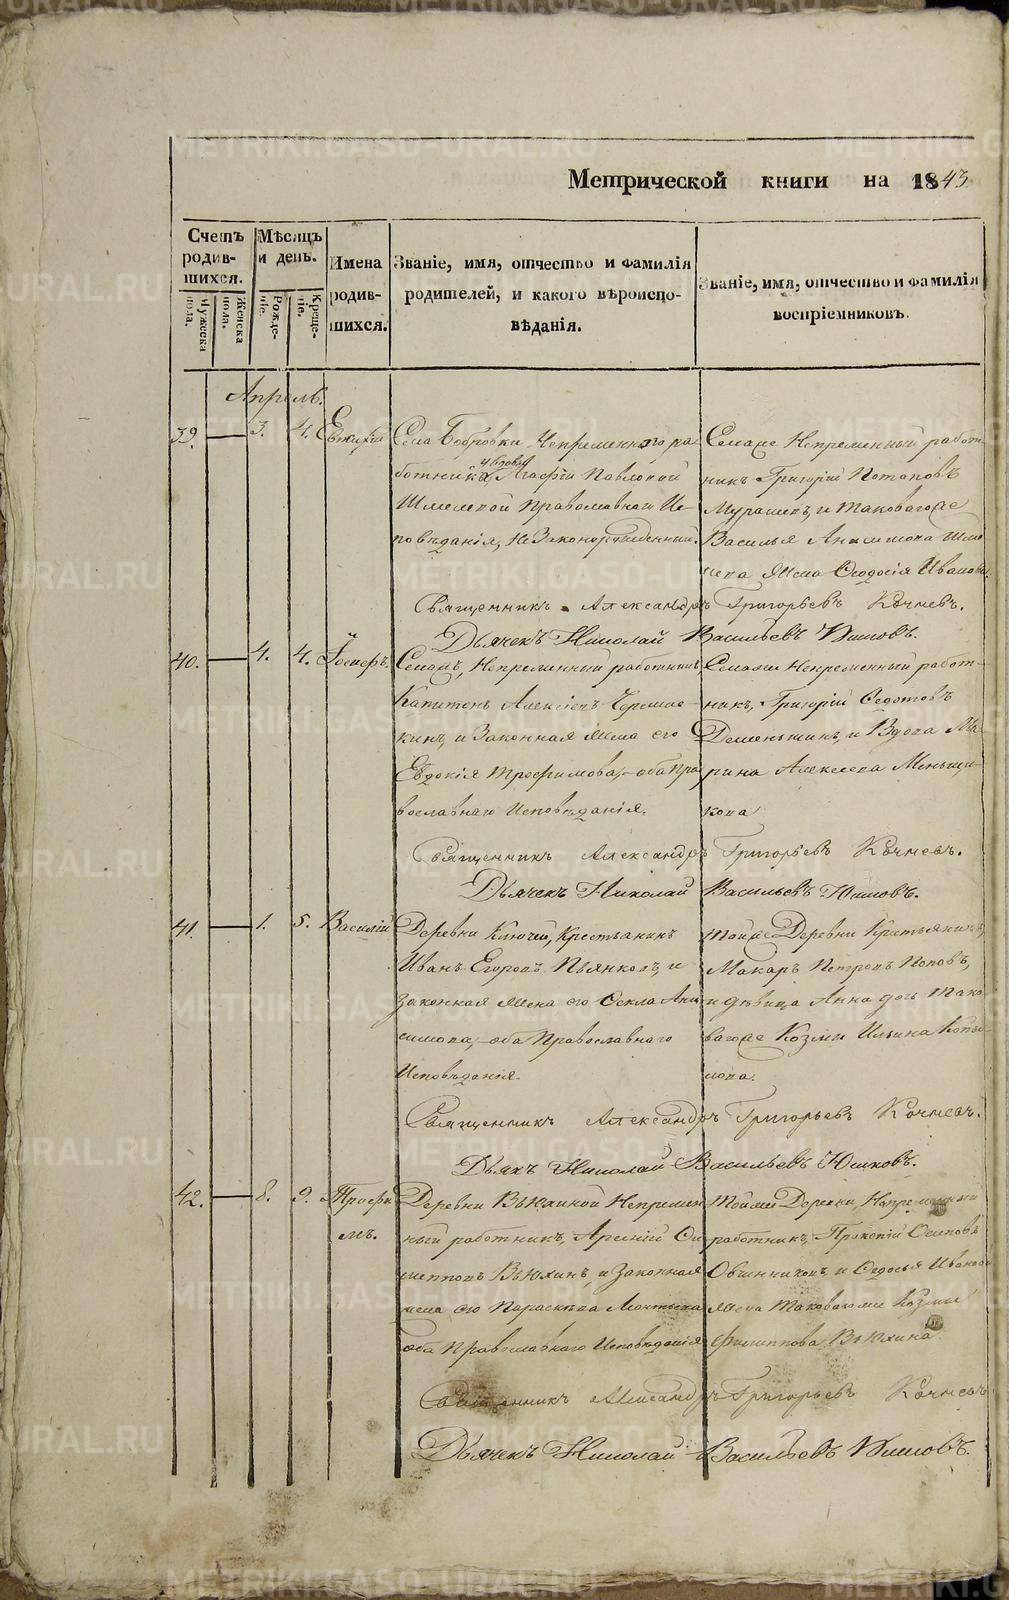 Метрической книги на 1843
Счетъ родившихся.
Мѣсяцъ и день.
Имена родившихся.
Званіе, имя, отчество и фамилія родителей, и какого вѣроисповѣданія.
Званіе, имя, отчество и фамилія воспріемниковъ.
Мужеска пола.
Женска пола.
Рожденіе.
Крещеніе.
Апрель.
39. 3. 4. Евтихій
Села Бобровки Непременнаго ра-
ботника вдова Агафія Павловой
Православнаго Ис-
повѣданія, Незаконорожденный.
Селаже Непременный работ-
никъ Григорій Потаповъ
и таковагоже
Василья Анисимова
жена Ѳеодосія Иванова.
Священникъ Александръ Григорьевъ Кочневъ.
Дьячекъ Николай Васильевъ Юшковъ.
40. 4. 4. Іосифъ.
Селажъ, Непременный работникъ,
Капитонъ Алексіевъ
и Законная жена его
Евдокія Трофимова, оба Пра-
вославнаго Исповѣданія.
Селаже Непременный работ-
никъ, Григорій Ѳедотовъ
Деменьшинъ, и Вдова Ма-
рина Алексеева Меньщи-
кова
Священникъ Александръ Григорьевъ Кочневъ.
Дьячекъ Николай Васильевъ Юшковъ.
41. 1. 5. Василій
Деревни Ключей, Крестьянинъ
Иванъ Егоровъ Пьянковъ, и
законная жена его Ѳекла Ани-
симова, оба Православнаго
Исповѣданія.
Тойже Деревни Крестьянинъ,
Макаръ Петровъ Поповъ,
и дѣвица Анна дочь тако-
вагоже Козмы Ильина Копы-
лова.
Священникъ Александръ Григорьевъ Кочневъ.
Дьячекъ Николай Васильевъ Юшковъ.
42. 8. 9. Трофи-
мъ.
Деревни Вьюхиной Непремен-
ный работникъ, Арсеній Фи-
липповъ Вьюхинъ, и Законная
жена его Параскева Леонтьева
оба Православнаго Исповѣданія
Тойже Деревни, Непременный
работникъ, Прокопій Осиповъ
Овчинниковъ, и Ѳедосья Иванова
жена таковагоже Козмы
Филиппова Вьюхина.
Священникъ Александръ Григорьевъ Кочневъ
Дьячекъ Николай Васильевъ Юшковъ.
METRIKI.GASO-URAL.RU